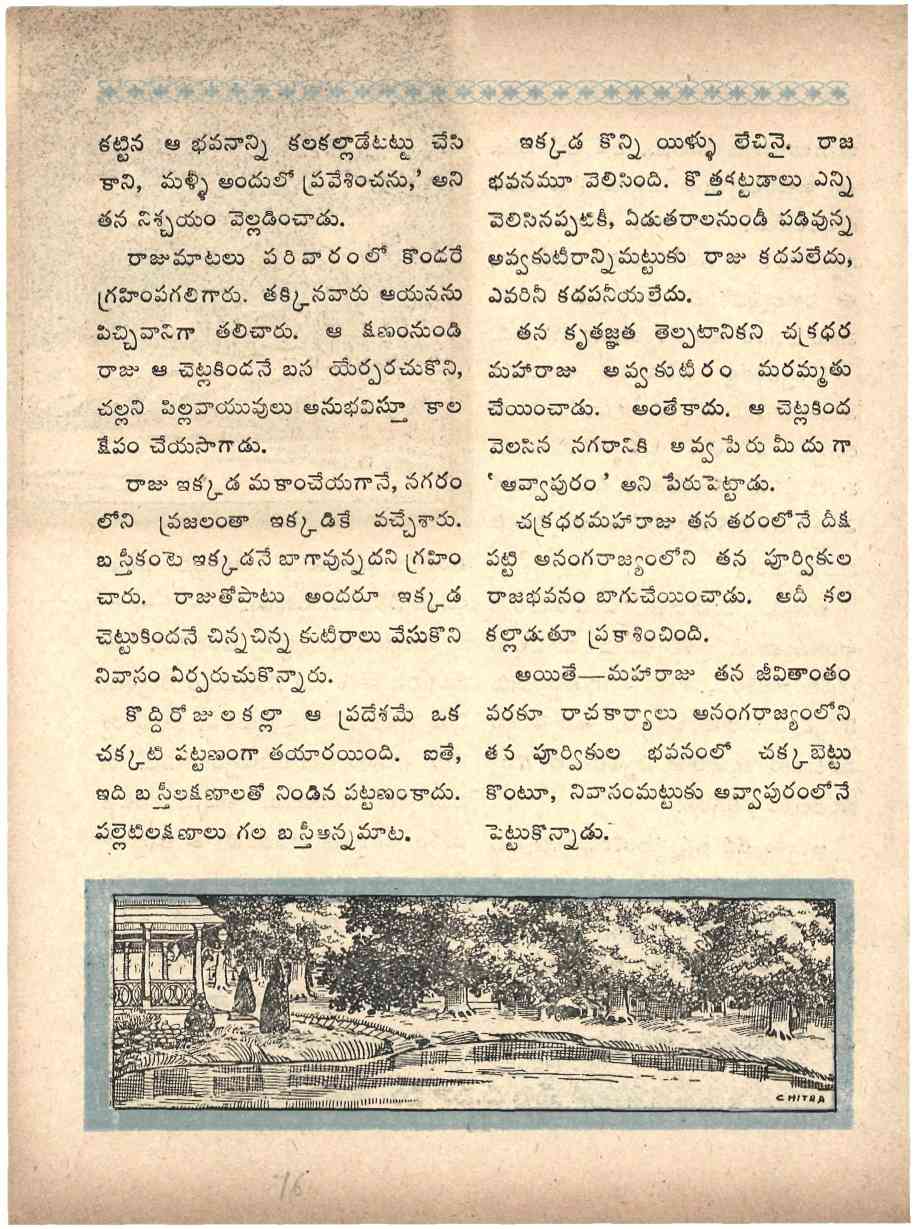 కట్టిన ఆ భవనాన్ని కలకల్లాడేటట్టు చేసి
కాని, మళ్ళీ అందులో ప్రవేశించను,’ అని
తన నిశ్చయం వెల్లడించాడు.
రాజుమాటలు పరివారంలో కొందరే
గ్రహింపగలిగారు. తక్కినవారు ఆయనను
పిచ్చివానిగా తలిచారు. ఆ క్షణంనుండి
రాజు ఆ చెట్లకిందనే బస యేర్పరచుకొని,
చల్లని పిల్లవాయువులు అనుభవిస్తూ కాల
క్షేపం చేయసాగాడు.
రాజు ఇక్కడ మకాంచేయగానే, నగరం
లోని ప్రజలంతా ఇక్కడికే వచ్చేశారు.
బస్తీకంటె ఇక్కడనే బాగావున్నదని గ్రహిం
చారు. రాజుతోపాటు అందరూ ఇక్కడ
చెట్టుకిందనే చిన్నచిన్న కుటీరాలు వేసుకొని
నివాసం ఏర్పరుచుకొన్నారు.
కొద్దిరోజులకల్లా ఆ ప్రదేశమే ఒక
చక్కటి పట్టణంగా తయారయింది. ఐతే,
ఇది బస్తీలక్షణాలతో నిండిన పట్టణంకాదు.
పల్లెటిలక్షణాలు గల బస్తీఅన్నమాట.
ఇక్కడ కొన్ని యిళ్ళు లేచినై. రాజ
భవనమూ వెలిసింది. కొత్తకట్టడాలు ఎన్ని
వెలిసినప్పటికీ, ఏడుతరాలనుండీ పడివున్న
అవ్వకుటీరాన్నిమట్టుకు రాజు కదపలేదు,
ఎవరినీ కదపనీయలేదు.
తన కృతజ్ఞత తెల్పటానికని చక్రధర
మహారాజు అవ్వకుటీరం మరమ్మతు
చేయించాడు. అంతేకాదు. ఆ చెట్లకింద
వెలసిన నగరానికి అవ్వపేరుమీదుగా
‘అవ్వాపురం’ అని పేరుపెట్టాడు.
చక్రధరమహారాజు తన తరంలోనే దీక్ష
పట్టి అనంగరాజ్యంలోని తన పూర్వికుల
రాజభవనం బాగుచేయించాడు. ఆదీ కల
కల్లాడుతూ ప్రకాశించింది.
అయితే—మహారాజు తన జీవితాంతం
వరకూ రాచకార్యాలు అనంగరాజ్యంలోని
తన పూర్వికుల భవనంలో చక్కబెట్టు
కొంటూ, నివాసంమట్టుకు అవ్వాపురంలోనే
పెట్టుకొన్నాడు.
CHITRA
16